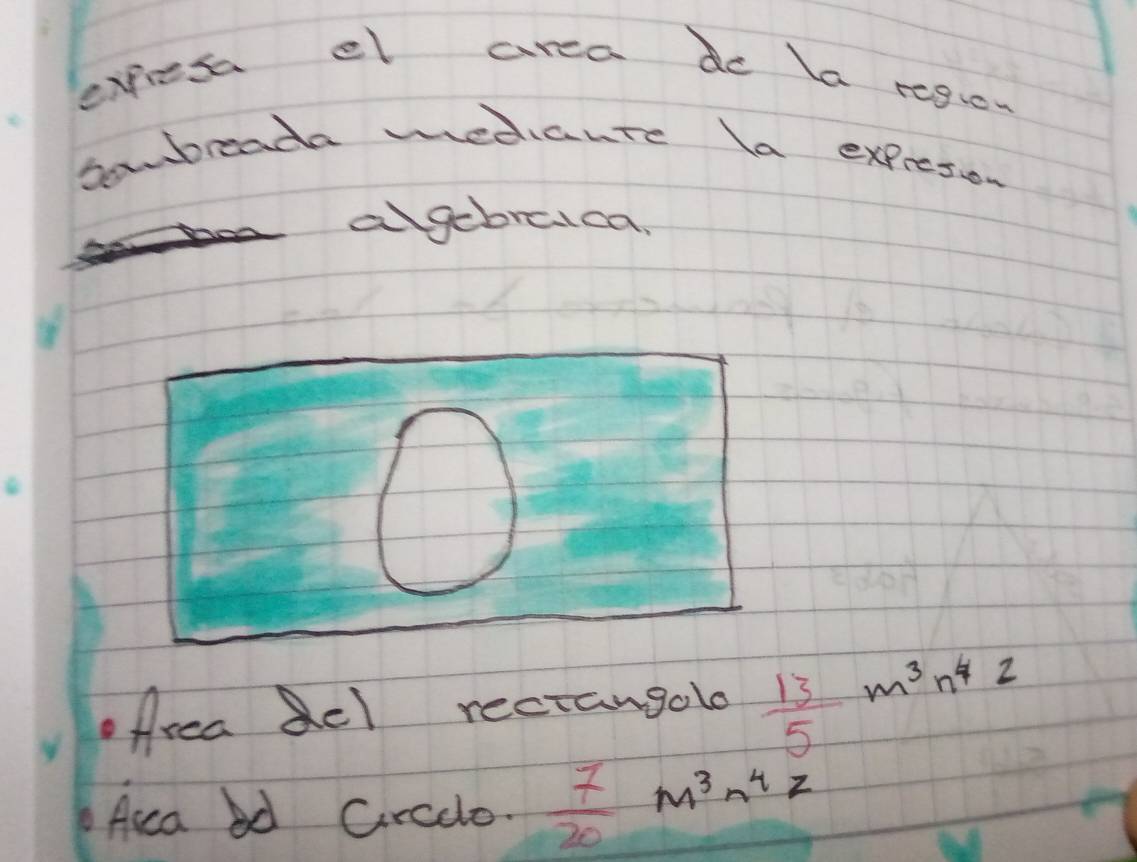 expresa el area de la region
sombreada mediante la expresion
algebraica.
• Area del rectangolo 13/5 m³n⁴ z
• Area del Circulo. 7/20 m³n⁴ z